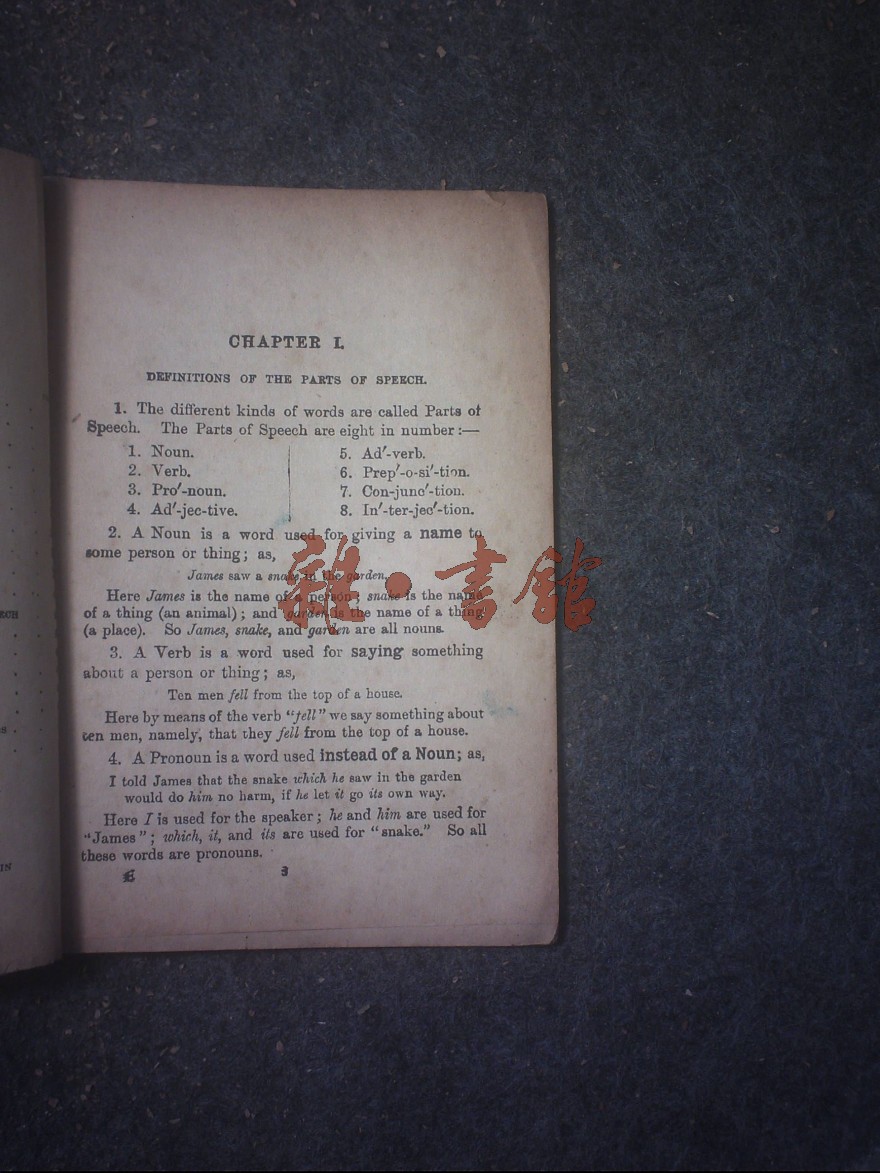 CHAPTER I.
DEFINITIONS OF THE PARTS OF SPEECH.
1. The different kinds of words are called Parts of
Speech. The Parts of Speech are eight in number :—
1. Noun.
2. Verb.
3. Pro′-noun.
4. Ad′-jec-tive.
5. Ad′-verb.
6. Prep′-o-si′-tion.
7. Con-junc′-tion.
8. In′-ter-jec′-tion.
2. A Noun is a word used for giving a name to
some person or thing ; as,
James saw a snake in the garden.
Here James is the name of a person ; snake is the name
of a thing (an animal) ; and garden is the name of a thing
(a place). So James, snake, and garden are all nouns.
3. A Verb is a word used for saying something
about a person or thing ; as,
Ten men fell from the top of a house.
Here by means of the verb "fell" we say something about
ten men, namely, that they fell from the top of a house.
4. A Pronoun is a word used instead of a Noun; as,
I told James that the snake which he saw in the garden
would do him no harm, if he let it go its own way.
Here I is used for the speaker ; he and him are used for
"James" ; which, it, and its are used for "snake." So all
these words are pronouns.
3
雜·書館
IN